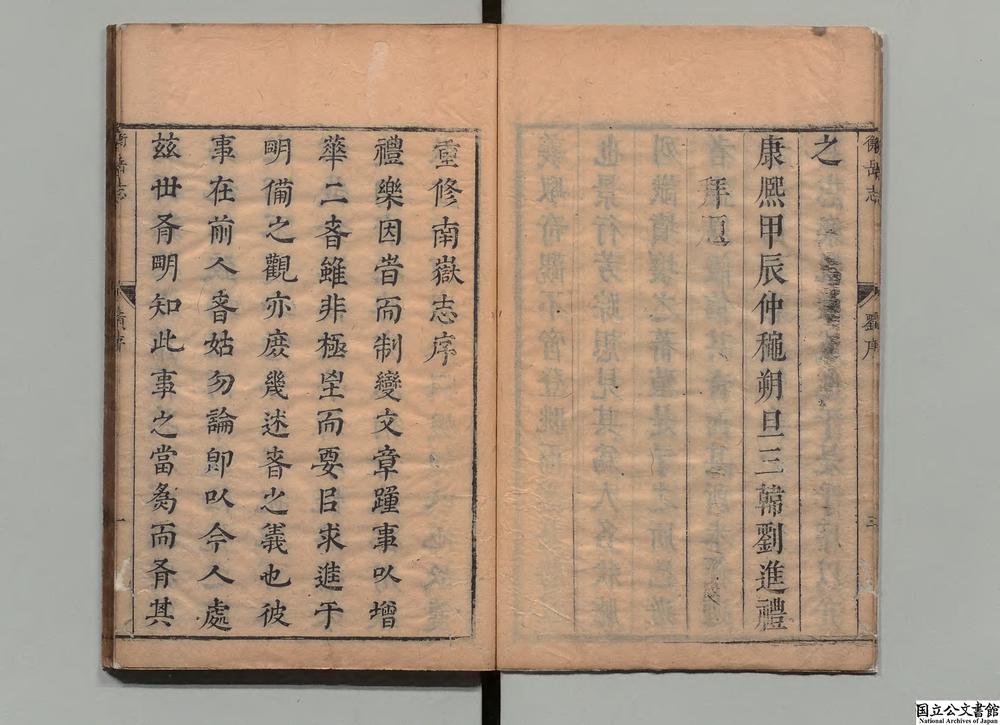 衡岳志 劉序 三
之
康熈甲辰仲穐朔旦三韓劉進禮
拜題
重修南嶽志序
禮樂因旹而制變文章踵事以增
華二者雖非極而要㠯求進于
明備之觀亦庶幾述者之義也彼
事在前人者姑勿論即以今人處
玆丗胥明知此事之當為而胥其
衡岳志 序 一
国立公文書館
National Archives of Japan